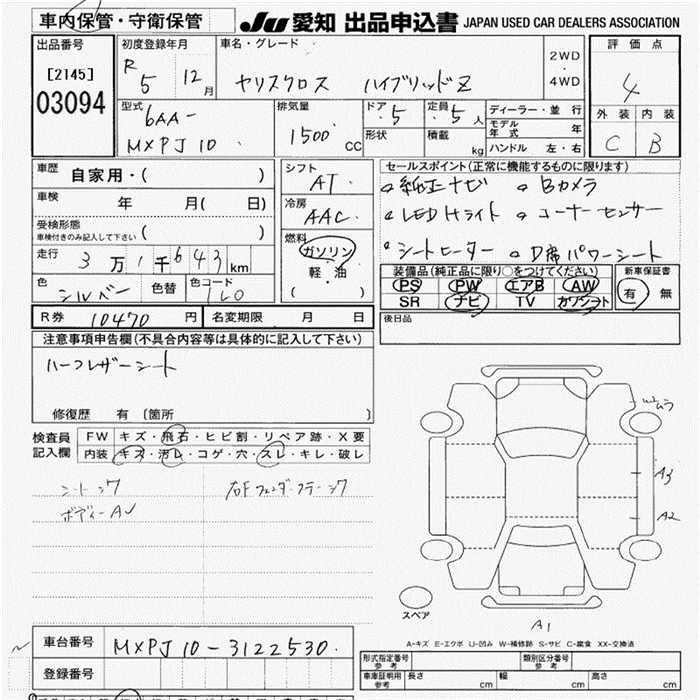 車内保管・守衛保管 JU 愛知 出品申込書 JAPAN USED CAR DEALERS ASSOCIATION
出品番号 [2145] 03094
初度登録年月 R 5 12月
車名・グレード ヤリスクロス ハイブリッドZ 2WD・4WD
評価点 4
型式 6AA- MXPJ10
排気量 1500 cc
ドア 5 定員 5 人
形状 積載 kg
ディーラー・並行
モデル年式 年
ハンドル 左・右
外装 内装
C B
車歴 自家用・( )
車検 年 月( 日)
受検形態
車検付きのみ記入して下さい ( )
走行 3万1千643km
色 シルバー 色替 色コード 1L0
シフト AT
冷房 AAC
燃料 ガソリン 軽・油 ( )
セールスポイント(正常に機能するものに限ります)
純正ナビ Bカメラ
LEDHライト コーナーセンサー
シートヒーター D席パワーシート
装備品(純正品に限り○をつけてください) 新車保証書
PS PW エアB AW 有 無
SR ナビ TV カワシート
後日品
R券 10470 円 名変期限 月 日
注意事項申告欄(不具合内容等は具体的に記入して下さい)
ハーフレザーシート
修復歴 有 〔箇所 〕
検査員記入欄 FW キズ・飛石・ヒビ割・リペア跡・X要
内装 キズ・汚レ・コゲ・穴・スレ・キレ・破レ
ボディーAU
A3
A2
スペア
A1
A-キズ E-エクボ U-凹み W-補修跡 S-サビ C-腐食 XX-交換済
車台番号 MXPJ10-3122530
登録番号
形式指定番号 参考 類別区分番号 参考
車庫証明用 参考 長さ cm 幅 cm 高さ cm